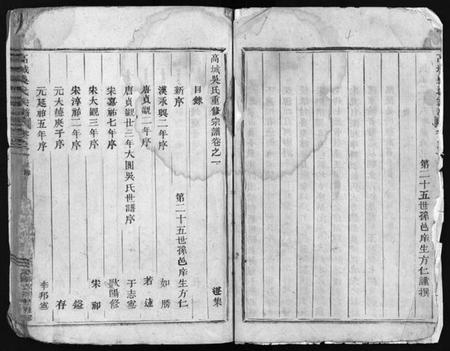 第二十五世孫邑庠生方仁謹撰
高城吳氏重修宗譜卷之一
目錄
第二十五世孫邑庠生方仁 選集
新序
漢永興二年序 如勝
唐貞觀二年序 若遠
唐貞觀廿三年大圓吳氏世譜序 于志寧
宋嘉祐七年序 歐陽修
宋大觀三年序 宋祁
宋淳祐二年序 鎰
元大德庚子序 存
元延祐五年序 李邦寧